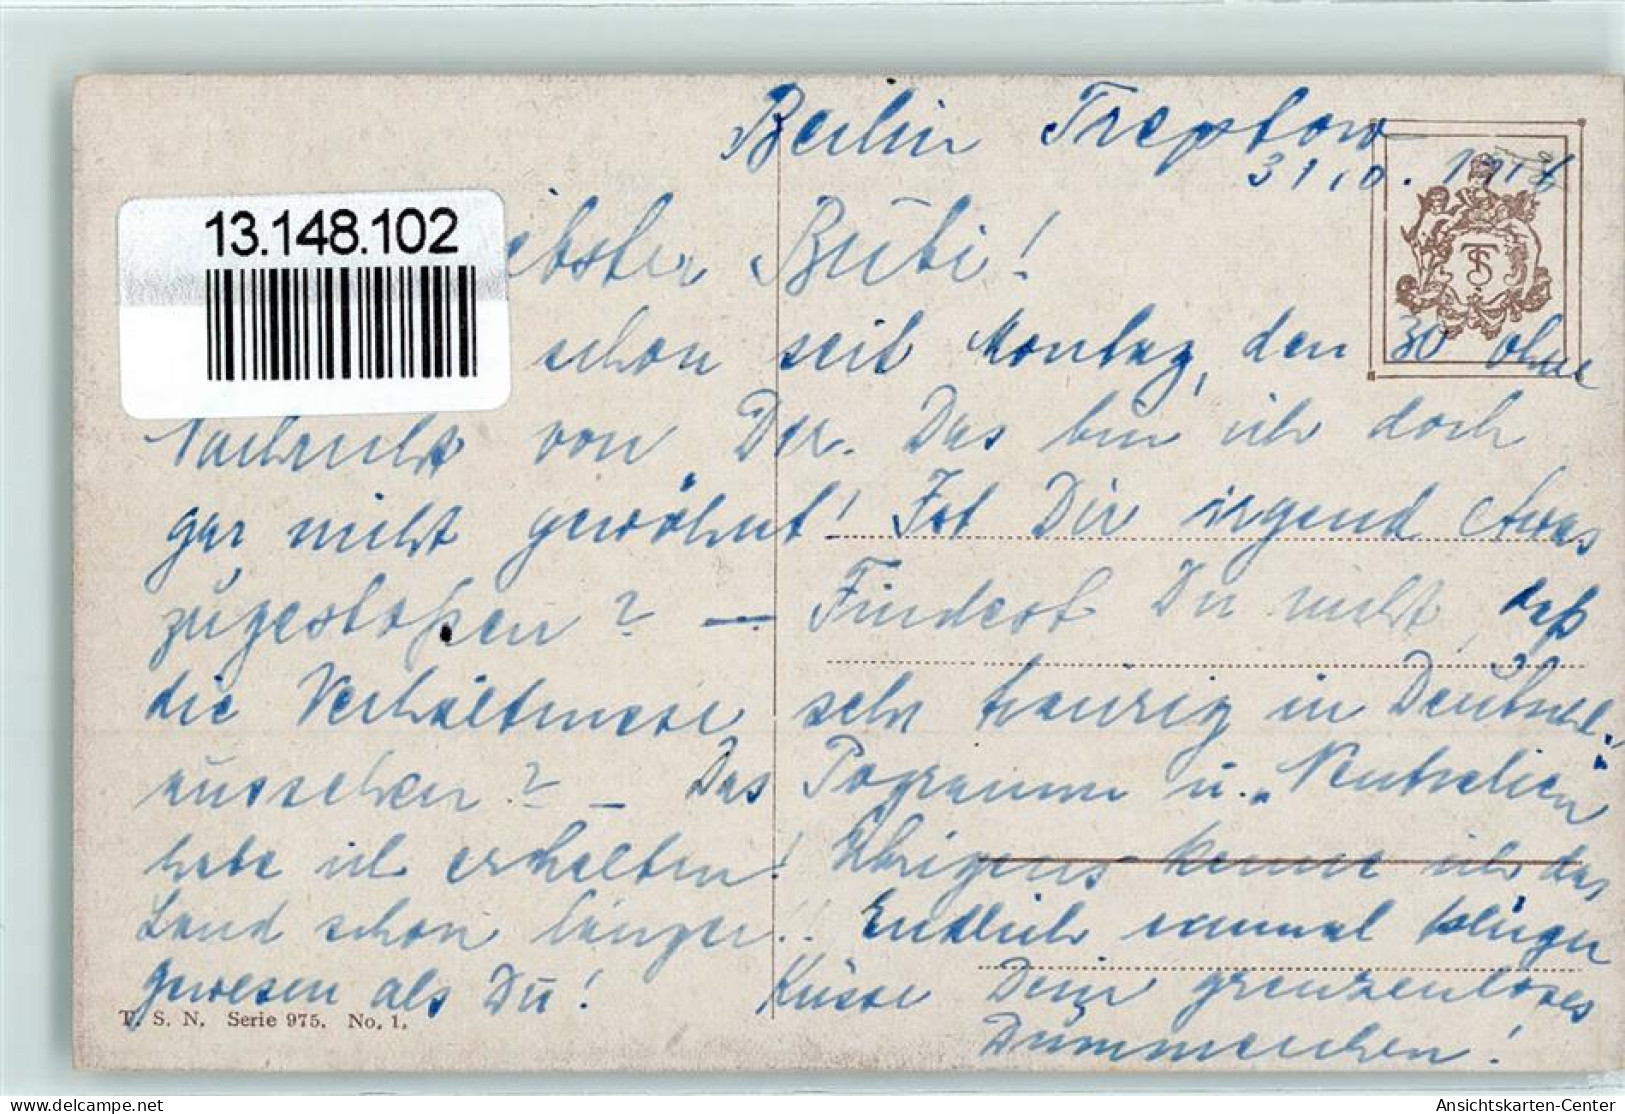 Berlin Treptow
13.148.102
ebster Bubi!
schon seit Montag, den 30 ohne
Nachricht von Dir. Das bin ich doch
gar nicht gewöhnt! Ist Dir irgend etwas
zugestoßen? — Findest Du nicht, daß
die Verhältnisse sehr traurig in Deutschl.
aussehen? — Das Programm u. „Neutralien"
habe ich erhalten! Übrigens kenne ich das
Land schon länger!! Endlich einmal klüger
gewesen als Du! Küsse Dein grenzenloses
Dummenchen!
T. S. N. Serie 975. No. 1.
delcampe.net
Ansichtskarten-Center